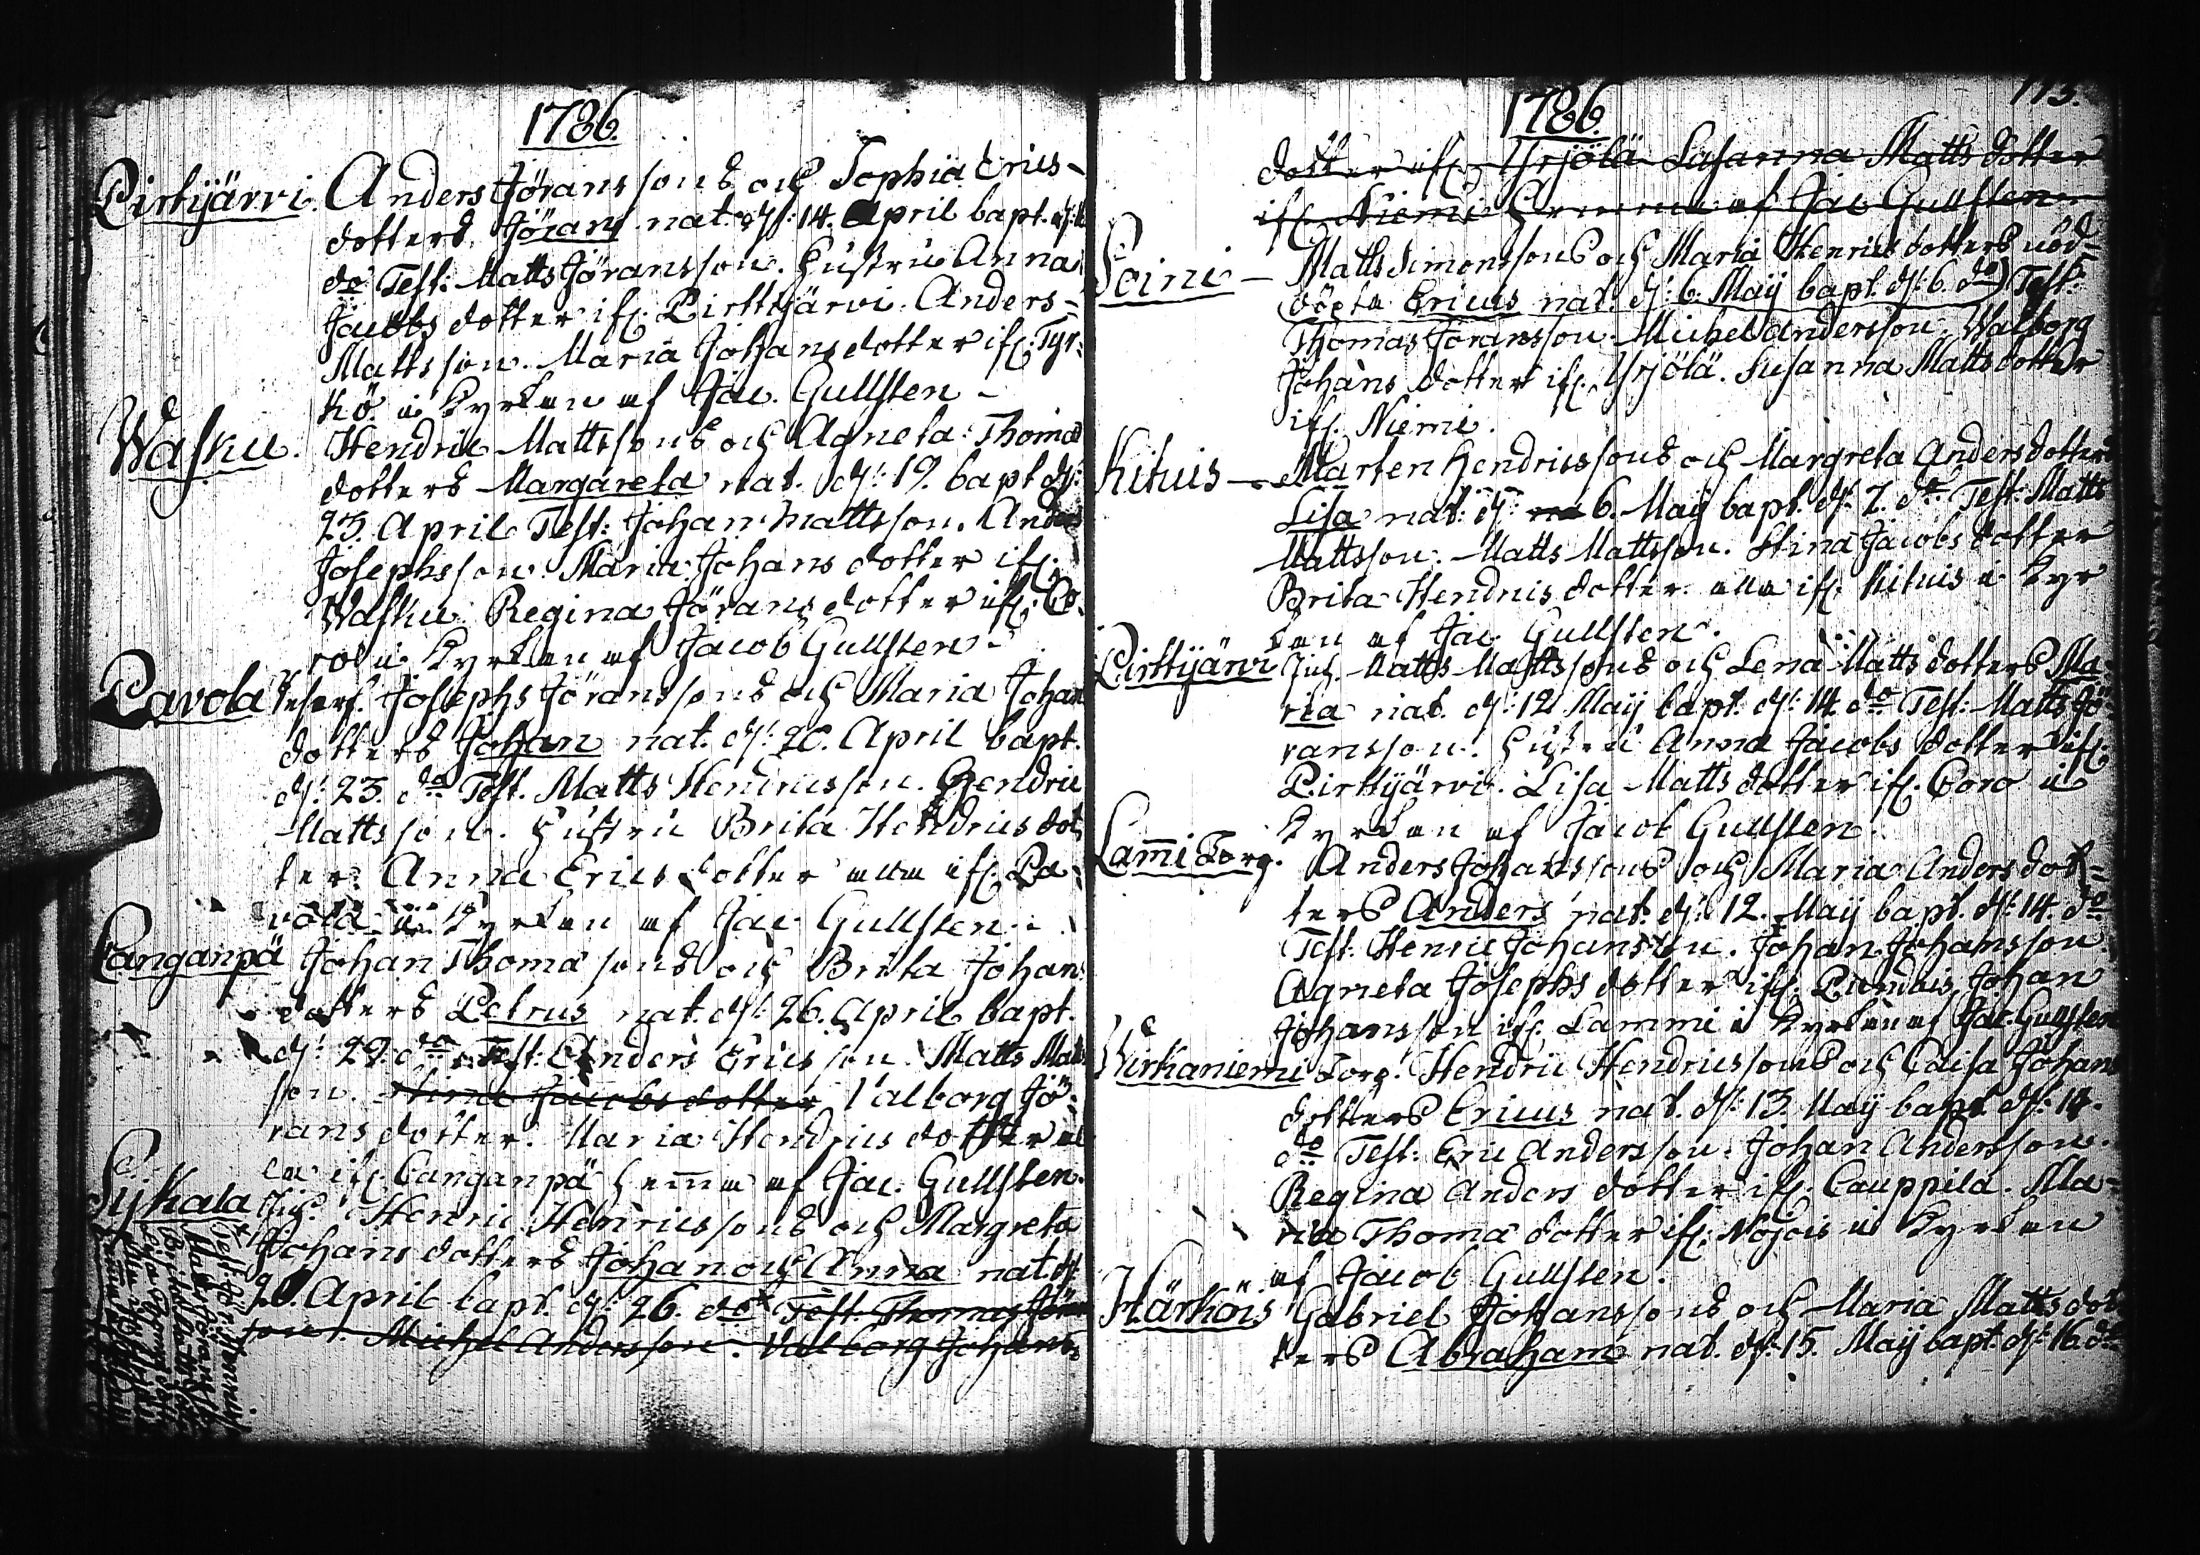 1786.
Pirttijärvi. Anders Jöranssons och Sophia Erics-
dotters Jöran nat. d: 14. April bapt.
do Test: Matts Jöransson. Hustru Anna
Jacobs dotter ifr. Pirttijärvi. Anders
Mattsson. Maria Johans dotter ifr. Tyr-
kö i Kyrkan af Jac. Gullsten
Wasku. Hendric Mattssons och Agneta Thomæ
dotters Margareta nat. d: 19. bapt d:
23. April Test: Johan Mattsson. Anders
Josephsson. Maria Johans dotter ifr.
Wasku. Regina Jörans dotter ifr. Co-
ro i Kyrkan af Jacob Gullsten.
Pavola Josephs Jöranssons och Maria Johans
dotters Johan nat. d: 20. April bapt.
d: 23. do Test. Matts Henricsson. Hendric
Mattsson. Hustru Brita Hendrics dot
ter. Anna Erics dotter alla ifr. Pa-
vola i Kyrkan af Jac Gullsten.
Canganpä Johan Thomæ sons och Brita Johans
dotters Petrus nat. d: 26. April bapt.
d: 29. do Test: Anders Ericsson. Matts Matts
son. Stina Jacobs dotter Valborg Jö-
rans dotter. Maria Hendrics dotter al
la ifr. Canganpä hemma af Jac. Gullsten.
Sijkala Henric Henricssons och Margreta
Johans dotters Johan och Anna nat. d:
April bapt. d: 26. do Test. Thomas Jörans
son. Michel Andersson. Valborg Johans
113.
1786.
dotter ifr. Yrjölä Susanna Matts dotter
ifr. Niemi hemma af Jac Gullsten.
Soini - Matts Simonssons och Maria Henrics dotters nöd-
döpta Ericus nat. d: 6. Maij bapt. d: 6. do Test:
Thomas Jöransson. Michel Andersson. Walborg
Johans dotter ifr. Yrjölä. Susanna Matts dotter
ifr. Niemi.
Kituis - Marten Hendricssons och Margreta Anders dotters
Lisa nat: d: 6. Maij bapt. d: 7. do Test: Matts
Mattsson. Matts Mattsson. Stina Jacobs dotter
Brita Hendrics dotter alla ifr. Kituis i Kyr
kan af Jac Gullsten.
Pirttijärvi Inh. Matts Mattssons och Lena Matts dotters Ma-
ria nat. d: 12 Maij bapt. d: 14. do Test: Matts Jö-
ransson. Hustru Anna Jacobs dotter ifr.
Pirttijärvi. Lisa Matts dotter ifr. Coro i
Kyrkan af Jacob Gullsten.
Lammi Torp. Anders Johanssons och Maria Anders dot-
ters Anders nat. d: 12. Maij bapt. d: 14. do
Test: Henric Johansson. Johan Johansson
Agneta Josephs dotter ifr. Johan
Johansson ifr. Lammi i Kyrkan af Jac. Gullsten
Wirkaniemi Torp. Hendric Hendricssons och Caisa Johans
dotters Ericus nat. d: 13. Maij bapt d: 14.
do Test: Eric Andersson. Johan Andersson.
Regina Anders dotter ifr. Cauppila. Ma-
ria Thomæ dotter ifr. Nojois i Kyrkan
af Jacob Gullsten.
Härköis Gabriel Johanssons och Maria Matts dot
ters Abraham nat. d: 15. Maij bapt. d: 16. do